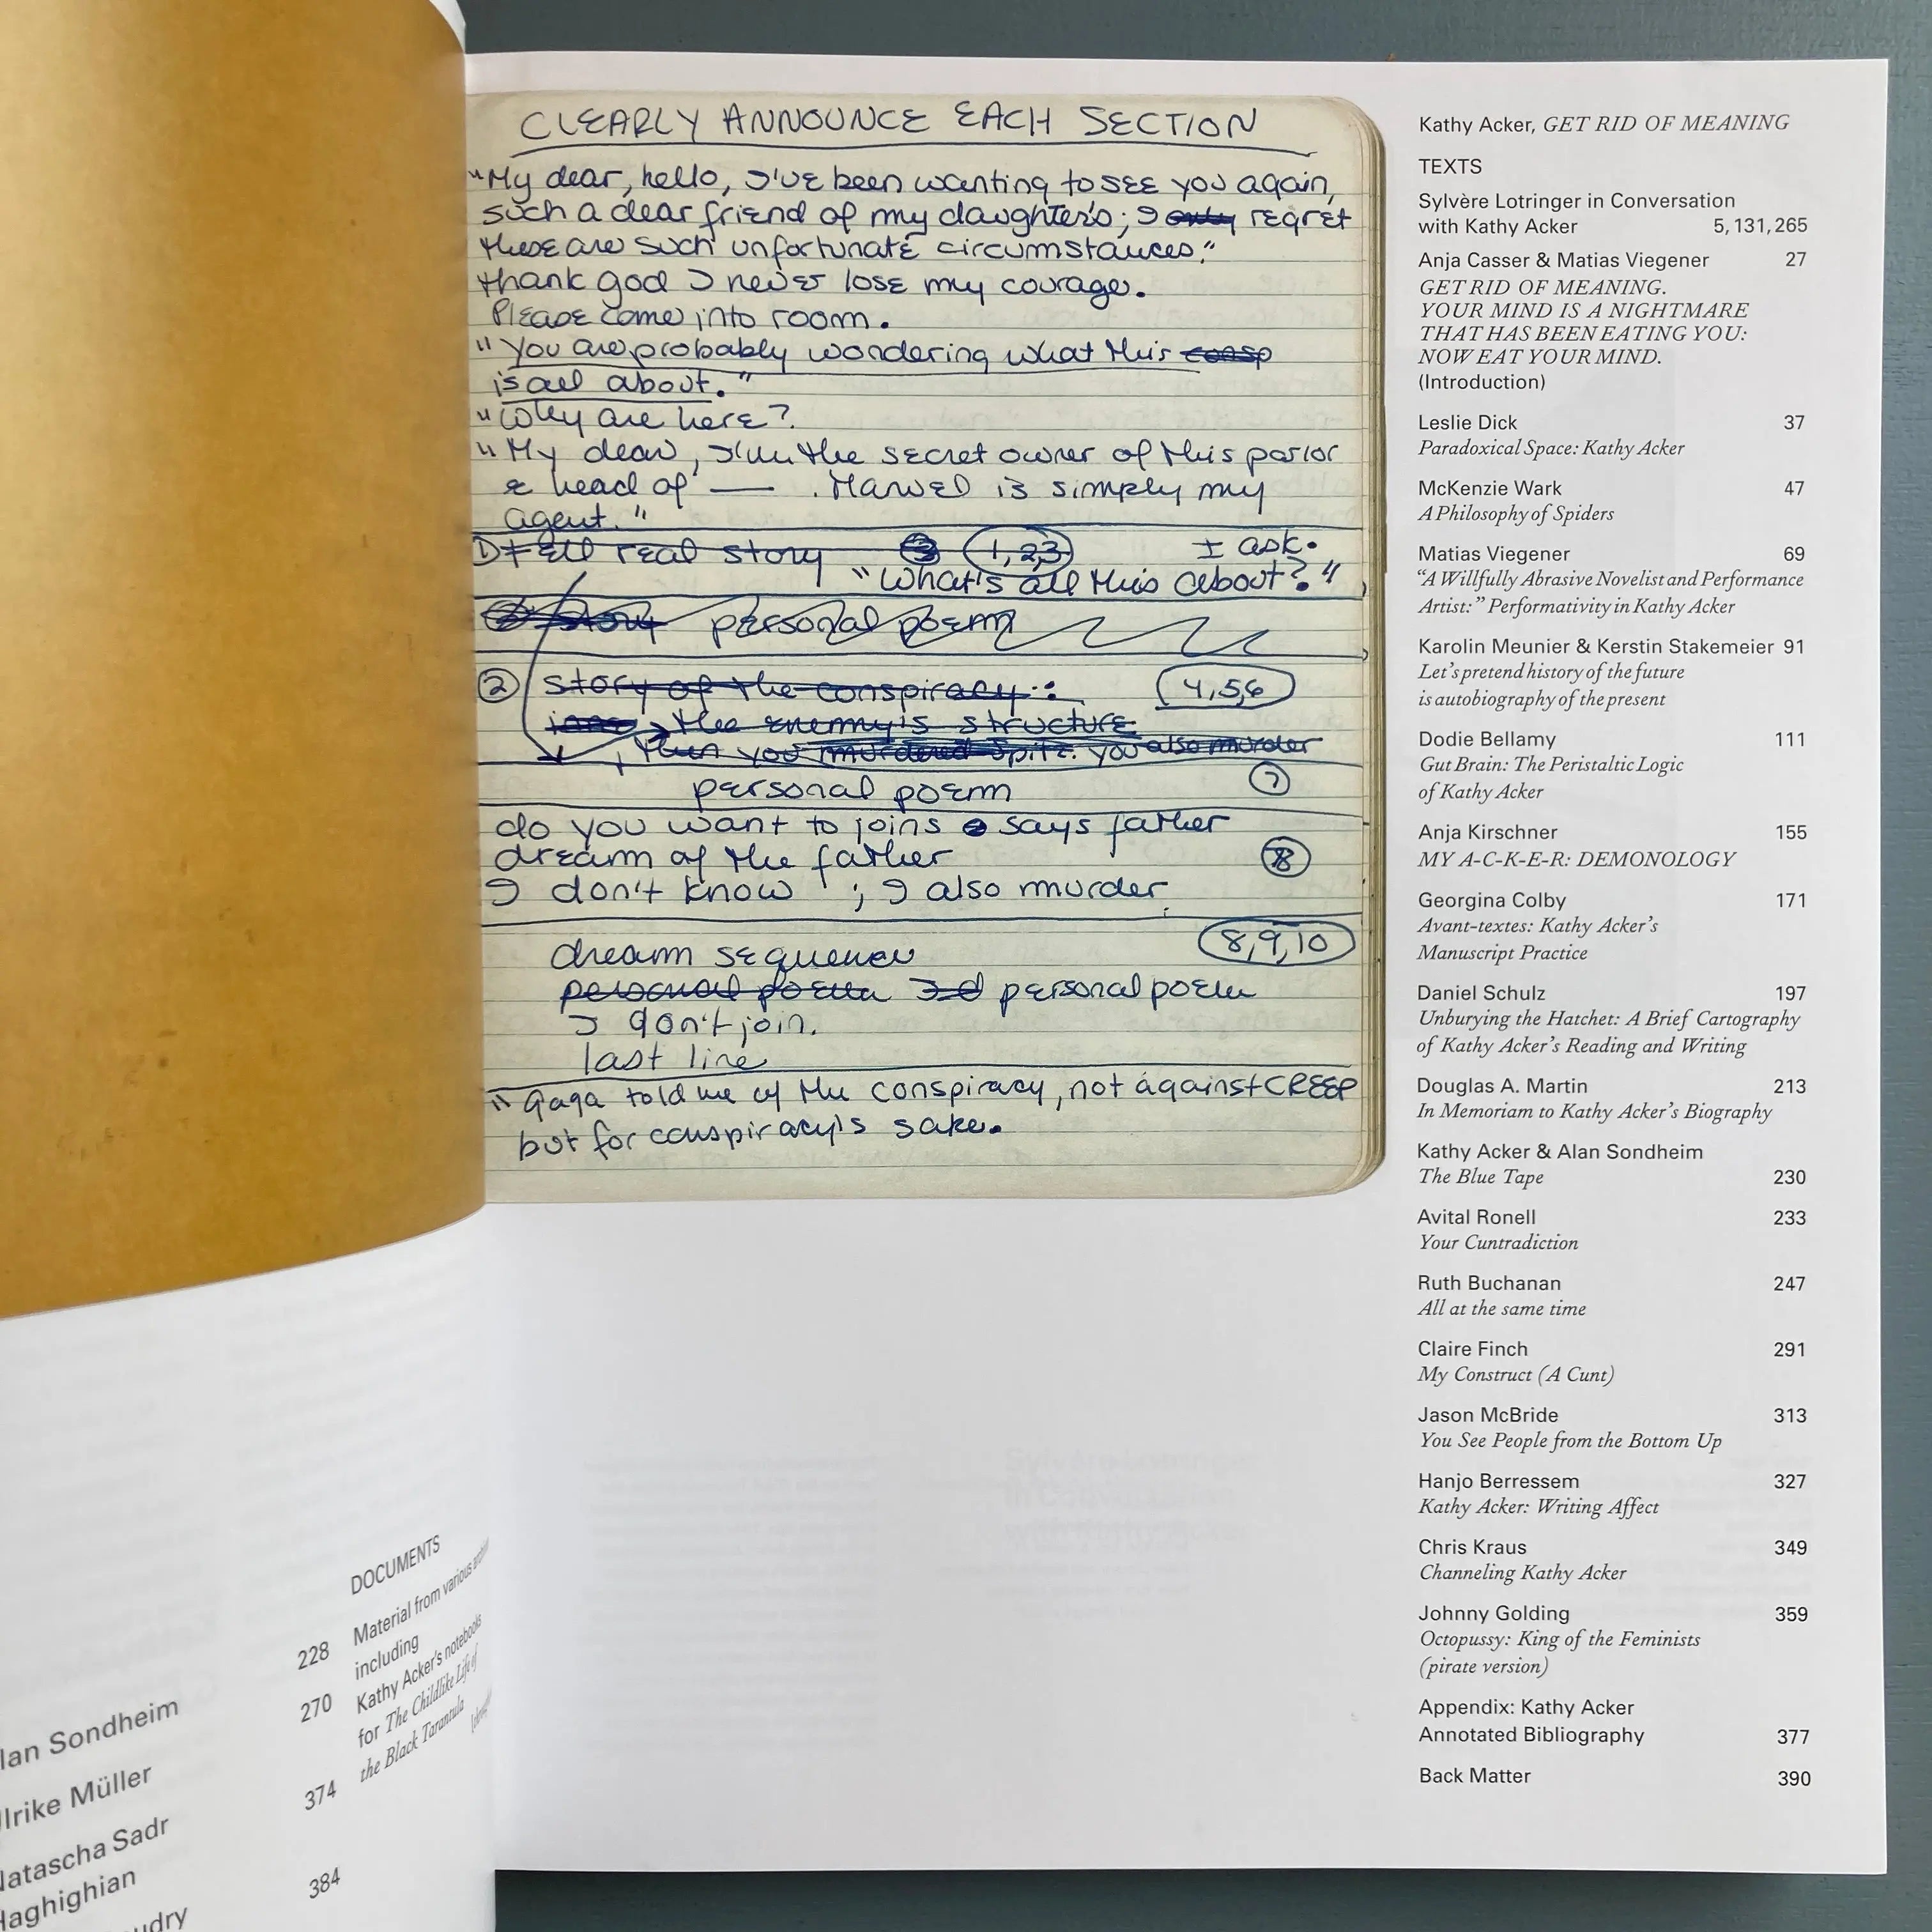 CLEARLY ANNOUNCE EACH SECTION
"My dear, hello, I've been wanting to see you again,
such a dear friend of my daughter's; I only regret
these are such unfortunate circumstances."
thank god I never lose my courage.
Please come into room.
"You are probably wondering what this consp
is all about."
"Why are here?
"My dear, I'm the secret owner of this parlor
& head of — . Marvel is simply my
agent."
1) tell real story 3 1,2,3 I ask.
"What's all this about?"
story personal poem
2 story of the conspiracy: 4,5,6
the enemy's structure
then you murdered Spitz. you also murder
personal poem 7
do you want to joins says father
dream of the father 8
I don't know ; I also murder
dream sequence 8,9,10
personal poem 3rd personal poem
I don't join.
last line
"Gaga told me of the conspiracy, not against CREEP
but for conspiracy's sake.
Kathy Acker, GET RID OF MEANING
TEXTS
Sylvère Lotringer in Conversation
with Kathy Acker 5, 131, 265
Anja Casser & Matias Viegener 27
GET RID OF MEANING.
YOUR MIND IS A NIGHTMARE
THAT HAS BEEN EATING YOU:
NOW EAT YOUR MIND.
(Introduction)
Leslie Dick 37
Paradoxical Space: Kathy Acker
McKenzie Wark 47
A Philosophy of Spiders
Matias Viegener 69
“A Willfully Abrasive Novelist and Performance
Artist:” Performativity in Kathy Acker
Karolin Meunier & Kerstin Stakemeier 91
Let’s pretend history of the future
is autobiography of the present
Dodie Bellamy 111
Gut Brain: The Peristaltic Logic
of Kathy Acker
Anja Kirschner 155
MY A-C-K-E-R: DEMONOLOGY
Georgina Colby 171
Avant-textes: Kathy Acker’s
Manuscript Practice
Daniel Schulz 197
Unburying the Hatchet: A Brief Cartography
of Kathy Acker’s Reading and Writing
Douglas A. Martin 213
In Memoriam to Kathy Acker’s Biography
Kathy Acker & Alan Sondheim
The Blue Tape 230
Avital Ronell 233
Your Cuntradiction
Ruth Buchanan 247
All at the same time
Claire Finch 291
My Construct (A Cunt)
Jason McBride 313
You See People from the Bottom Up
Hanjo Berressem 327
Kathy Acker: Writing Affect
Chris Kraus 349
Channeling Kathy Acker
Johnny Golding 359
Octopussy: King of the Feminists
(pirate version)
Appendix: Kathy Acker
Annotated Bibliography 377
Back Matter 390
lan Sondheim 228
lrike Müller 270
Natascha Sadr 374
Haghighian
udry 384
DOCUMENTS
Material from various
including
Kathy Acker’s notebooks
for The Childlike Life of
the Black Tarantula